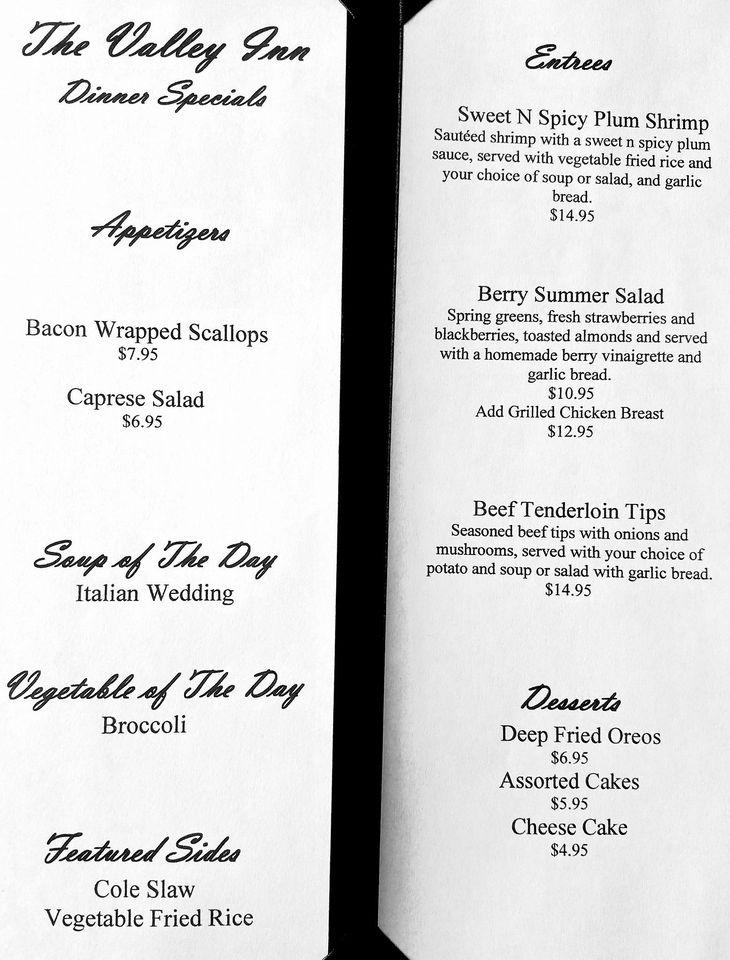 The Valley Inn
Dinner Specials
Appetizers
Bacon Wrapped Scallops
$7.95
Caprese Salad
$6.95
Soup of The Day
Italian Wedding
Vegetable of The Day
Broccoli
Featured Sides
Cole Slaw
Vegetable Fried Rice
Entrees
Sweet N Spicy Plum Shrimp
Sautéed shrimp with a sweet n spicy plum
sauce, served with vegetable fried rice and
your choice of soup or salad, and garlic
bread.
$14.95
Berry Summer Salad
Spring greens, fresh strawberries and
blackberries, toasted almonds and served
with a homemade berry vinaigrette and
garlic bread.
$10.95
Add Grilled Chicken Breast
$12.95
Beef Tenderloin Tips
Seasoned beef tips with onions and
mushrooms, served with your choice of
potato and soup or salad with garlic bread.
$14.95
Desserts
Deep Fried Oreos
$6.95
Assorted Cakes
$5.95
Cheese Cake
$4.95